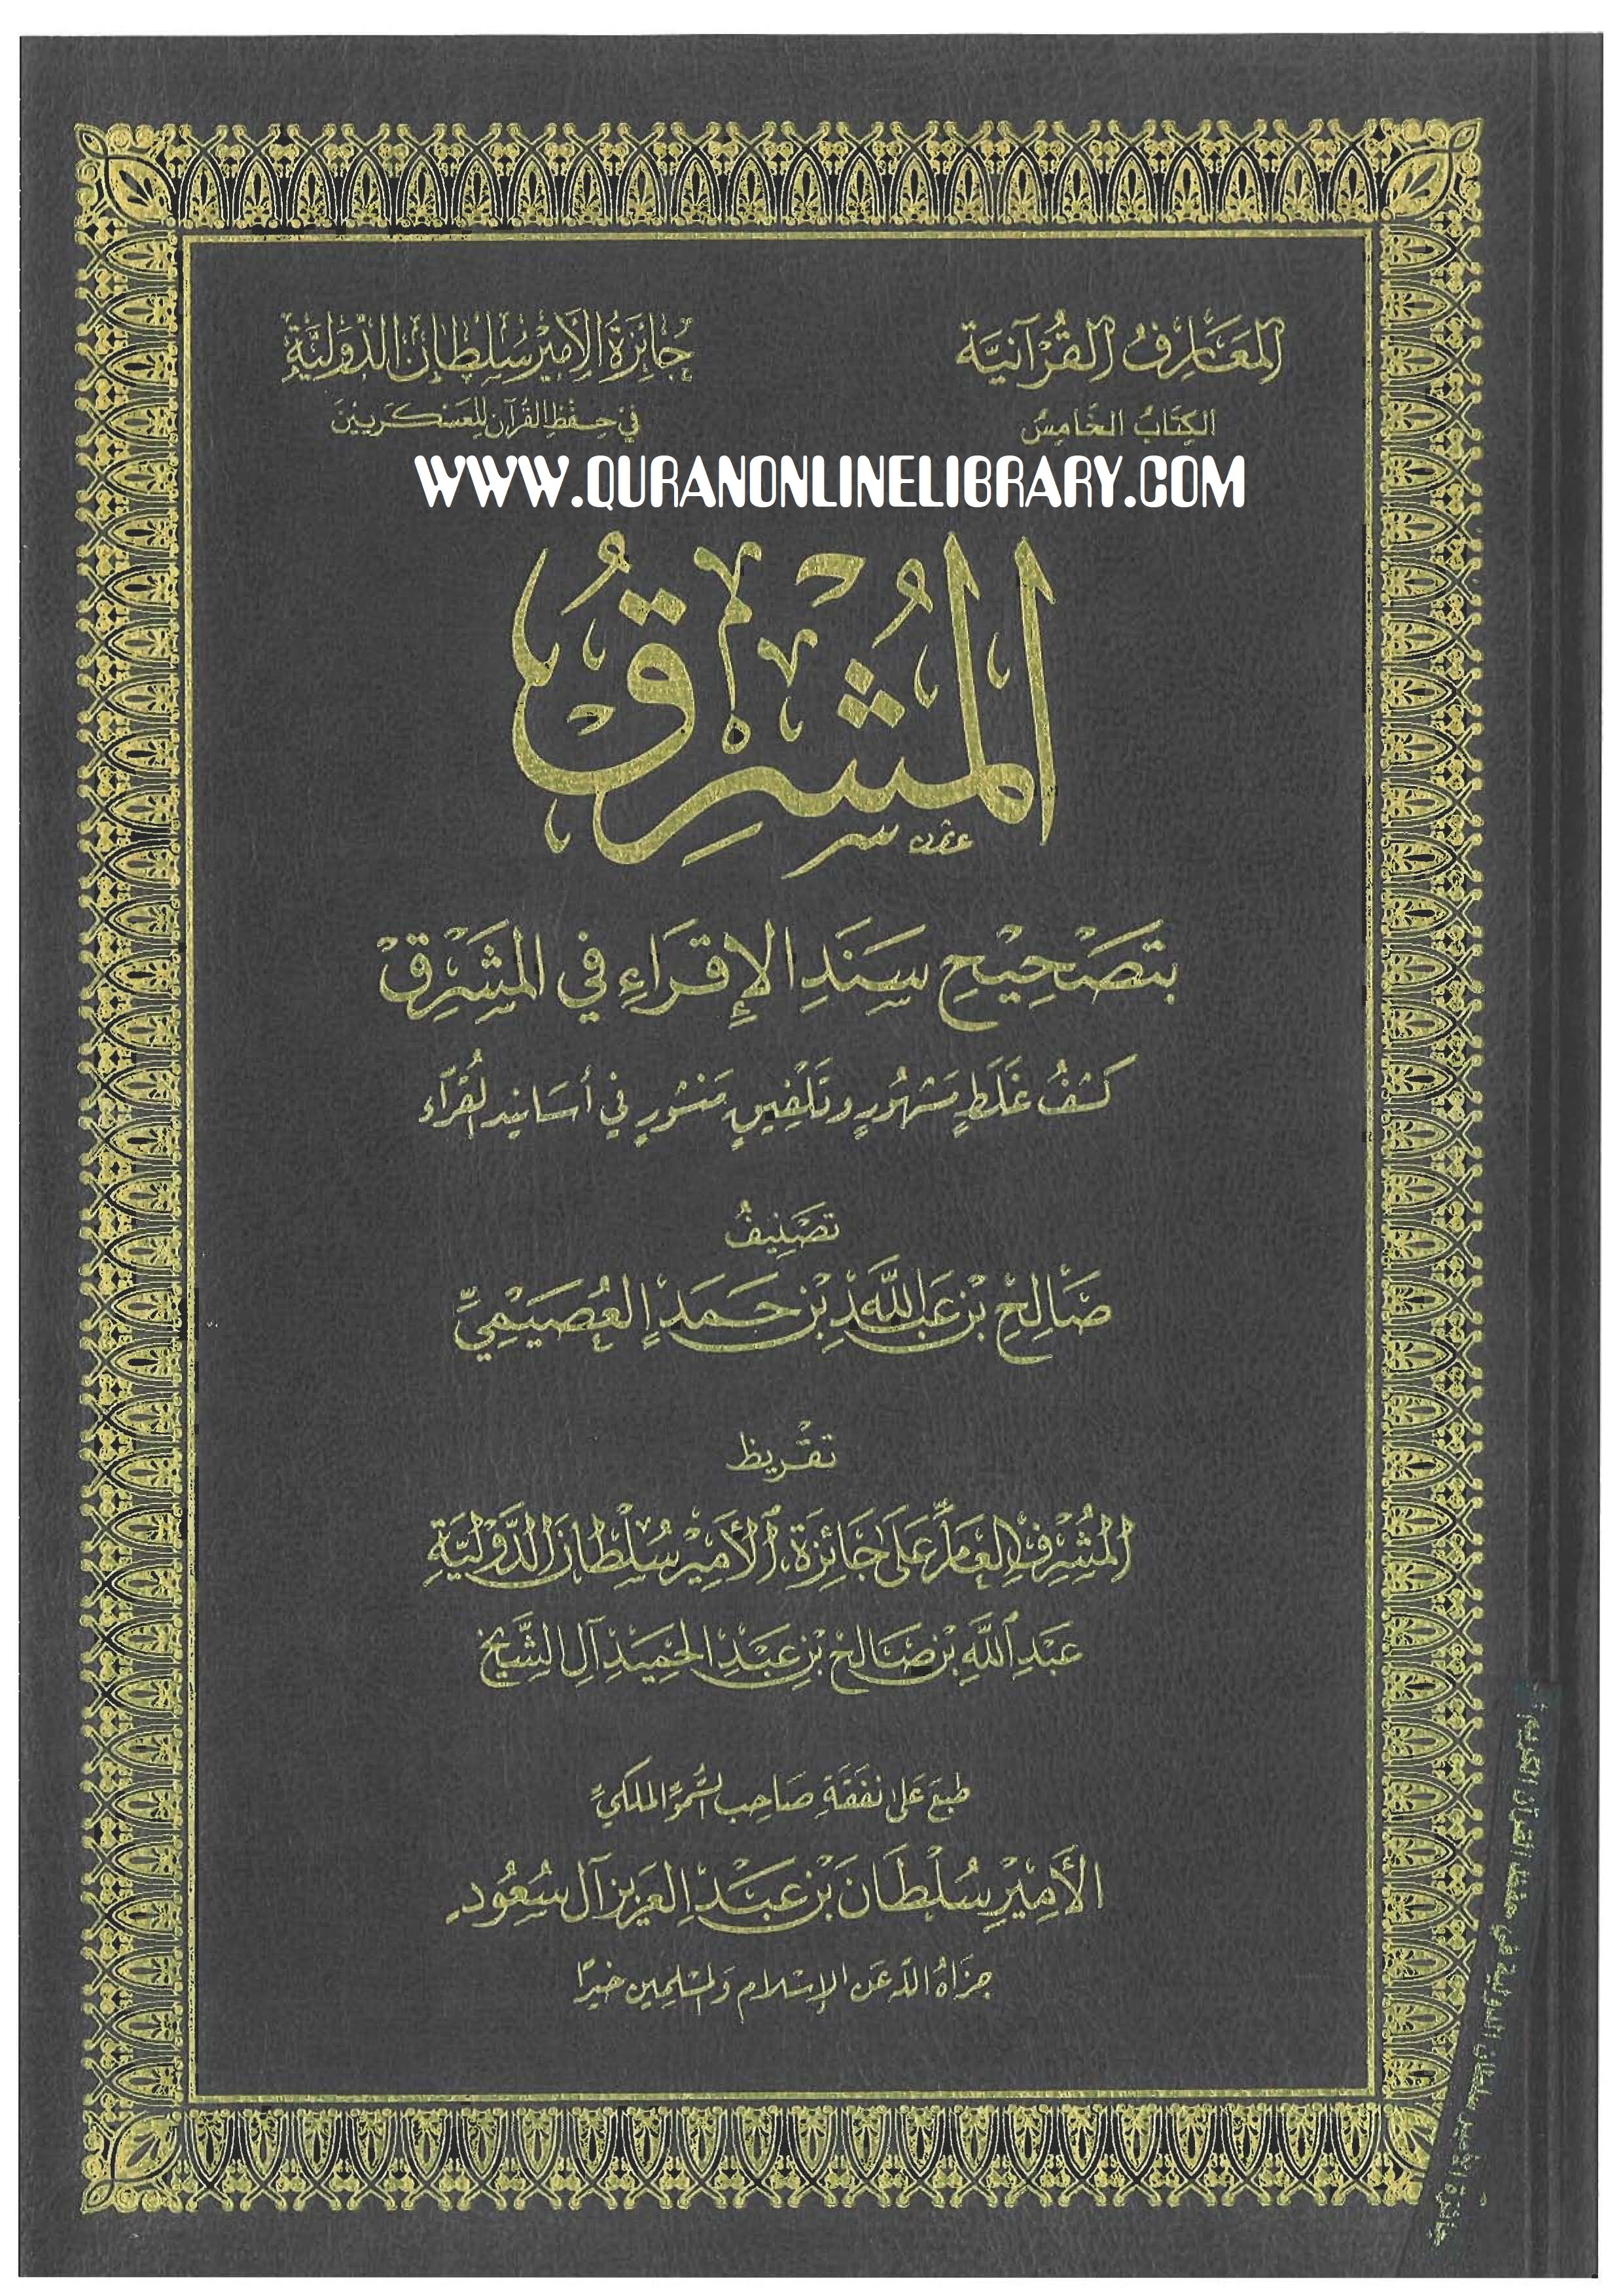 المَعَارِفُ القُرْآنِيَّة
الكِتَابُ الخَامِسُ
جَائِزَةُ الأَمِيرِ سُلْطَانَ الدَّوْلِيَّة
فِي حِفْظِ القُرْآنِ لِلْعَسْكَرِيِّينَ
WWW.QURANONLINELIBRARY.COM
المُشْرِقُ
بِتَصْحِيحِ سَنَدِ الإِقْرَاءِ فِي المَشْرِقِ
كَشْفُ غَلَطٍ مَشْهُورٍ وَتَلْفِيقٍ مَنْشُورٍ فِي أَسَانِيدِ القُرَّاءِ
تَصْنِيفُ
صَالِحِ بْنِ عَبْدِ اللَّهِ بْنِ حَمَدٍ العُصَيْمِيِّ
تَقْرِيظ
المُشْرِفِ العَامِّ عَلَى جَائِزَةِ الأَمِيرِ سُلْطَانَ الدَّوْلِيَّةِ
عَبْدِ اللَّهِ بْنِ صَالِحِ بْنِ عَبْدِ الحَمِيدِ آلِ الشَّيْخِ
طُبِعَ عَلَى نَفَقَةِ صَاحِبِ السُّمُوِّ المَلَكِيِّ
الأَمِيرِ سُلْطَانَ بْنِ عَبْدِ العَزِيزِ آل سُعُود
جَزَاهُ اللَّهُ عَنِ الإِسْلَامِ وَالمُسْلِمِينَ خَيْرًا
جائزة الأمير سلطان الدولية في حفظ القرآن الكريم